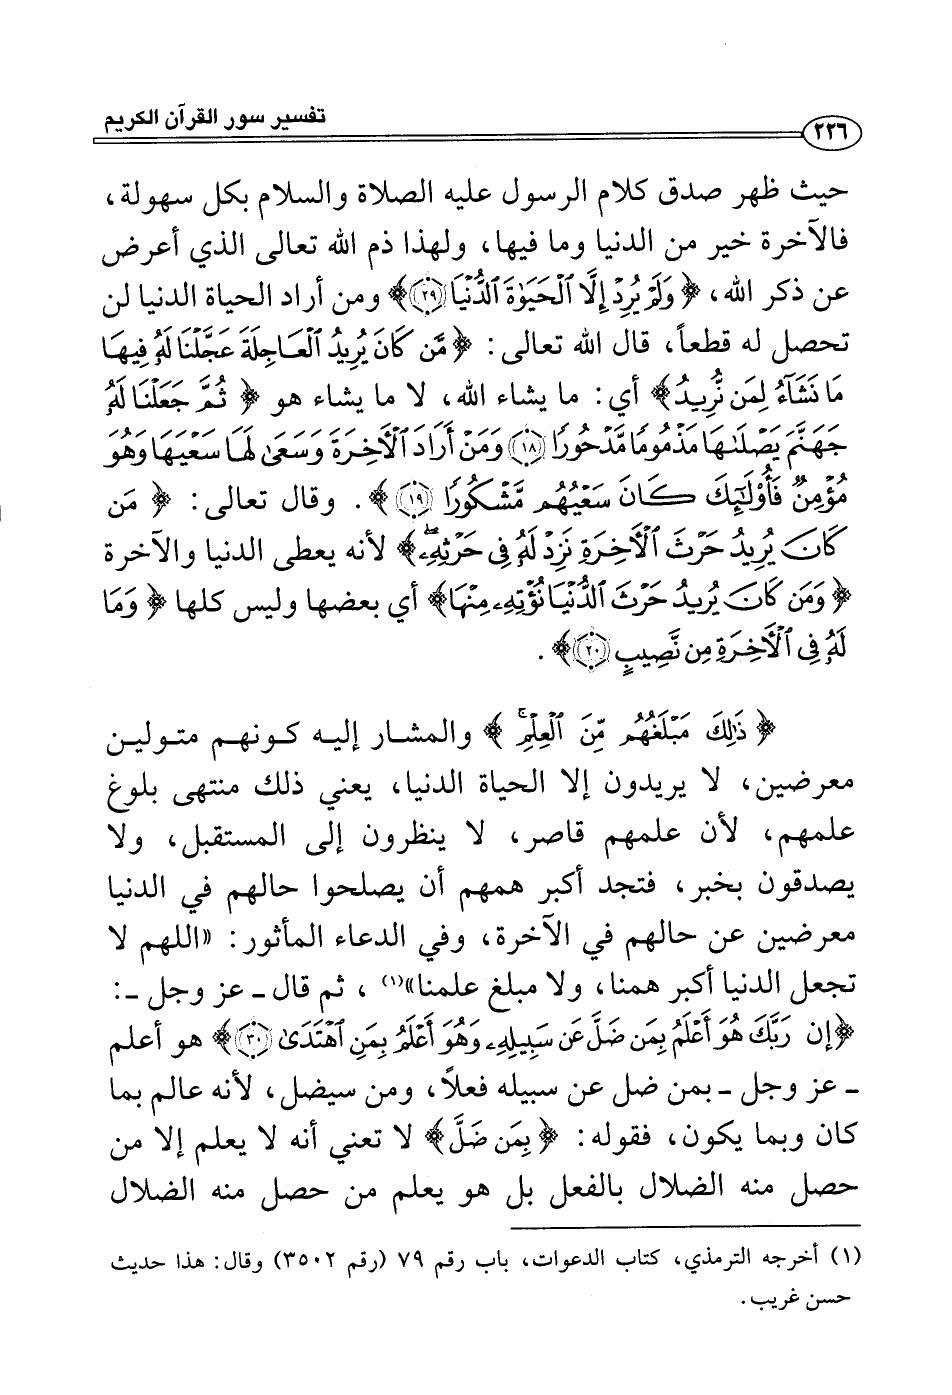 تفسير سور القرآن الكريم
٢٢٦
حيث ظهر صدق كلام الرسول عليه الصلاة والسلام بكل سهولة،
فالآخرة خير من الدنيا وما فيها، ولهذا ذم الله تعالى الذي أعرض
عن ذكر الله، ﴿وَلَمْ يُرِدْ إِلَّا ٱلْحَيَوٰةَ ٱلدُّنْيَا ٢٩﴾ ومن أراد الحياة الدنيا لن
تحصل له قطعاً، قال الله تعالى: ﴿مَّن كَانَ يُرِيدُ ٱلْعَاجِلَةَ عَجَّلْنَا لَهُۥ فِيهَا
مَا نَشَآءُ لِمَن نُّرِيدُ﴾ أي: ما يشاء الله، لا ما يشاء هو ﴿ثُمَّ جَعَلْنَا لَهُۥ
جَهَنَّمَ يَصْلَىٰهَا مَذْمُومًا مَّدْحُورًا ١٨ وَمَنْ أَرَادَ ٱلْأَخِرَةَ وَسَعَىٰ لَهَا سَعْيَهَا وَهُوَ
مُؤْمِنٌ فَأُوْلَٰٓئِكَ كَانَ سَعْيُهُم مَّشْكُورًا ١٩﴾. وقال تعالى: ﴿مَن
كَانَ يُرِيدُ حَرْثَ ٱلْأَخِرَةِ نَزِدْ لَهُۥ فِى حَرْثِهِۦۖ﴾ لأنه يعطى الدنيا والآخرة
﴿وَمَن كَانَ يُرِيدُ حَرْثَ ٱلدُّنْيَا نُؤْتِهِۦ مِنْهَا﴾ أي بعضها وليس كلها ﴿وَمَا
لَهُۥ فِى ٱلْأَخِرَةِ مِن نَّصِيبٍ ٢٠﴾.
﴿ذَٰلِكَ مَبْلَغُهُم مِّنَ ٱلْعِلْمِۚ﴾ والمشار إليه كونهم متولين
معرضين، لا يريدون إلا الحياة الدنيا، يعني ذلك منتهى بلوغ
علمهم، لأن علمهم قاصر، لا ينظرون إلى المستقبل، ولا
يصدقون بخبر، فتجد أكبر همهم أن يصلحوا حالهم في الدنيا
معرضين عن حالهم في الآخرة، وفي الدعاء المأثور: «اللهم لا
تجعل الدنيا أكبر همنا، ولا مبلغ علمنا»(١)، ثم قال ـ عز وجل ـ:
﴿إن رَبَّكَ هُوَ أَعْلَمُ بِمَن ضَلَّ عَن سَبِيلِهِۦ وَهُوَ أَعْلَمُ بِمَنِ ٱهْتَدَىٰ ٣٠﴾ هو أعلم
ـ عز وجل ـ بمن ضل عن سبيله فعلاً، ومن سيضل، لأنه عالم بما
كان وبما يكون، فقوله: ﴿بِمَن ضَلَّ﴾ لا تعني أنه لا يعلم إلا من
حصل منه الضلال بالفعل بل هو يعلم من حصل منه الضلال
(١) أخرجه الترمذي، كتاب الدعوات، باب رقم ٧٩ (رقم ٣٥٠٢) وقال: هذا حديث
حسن غريب.